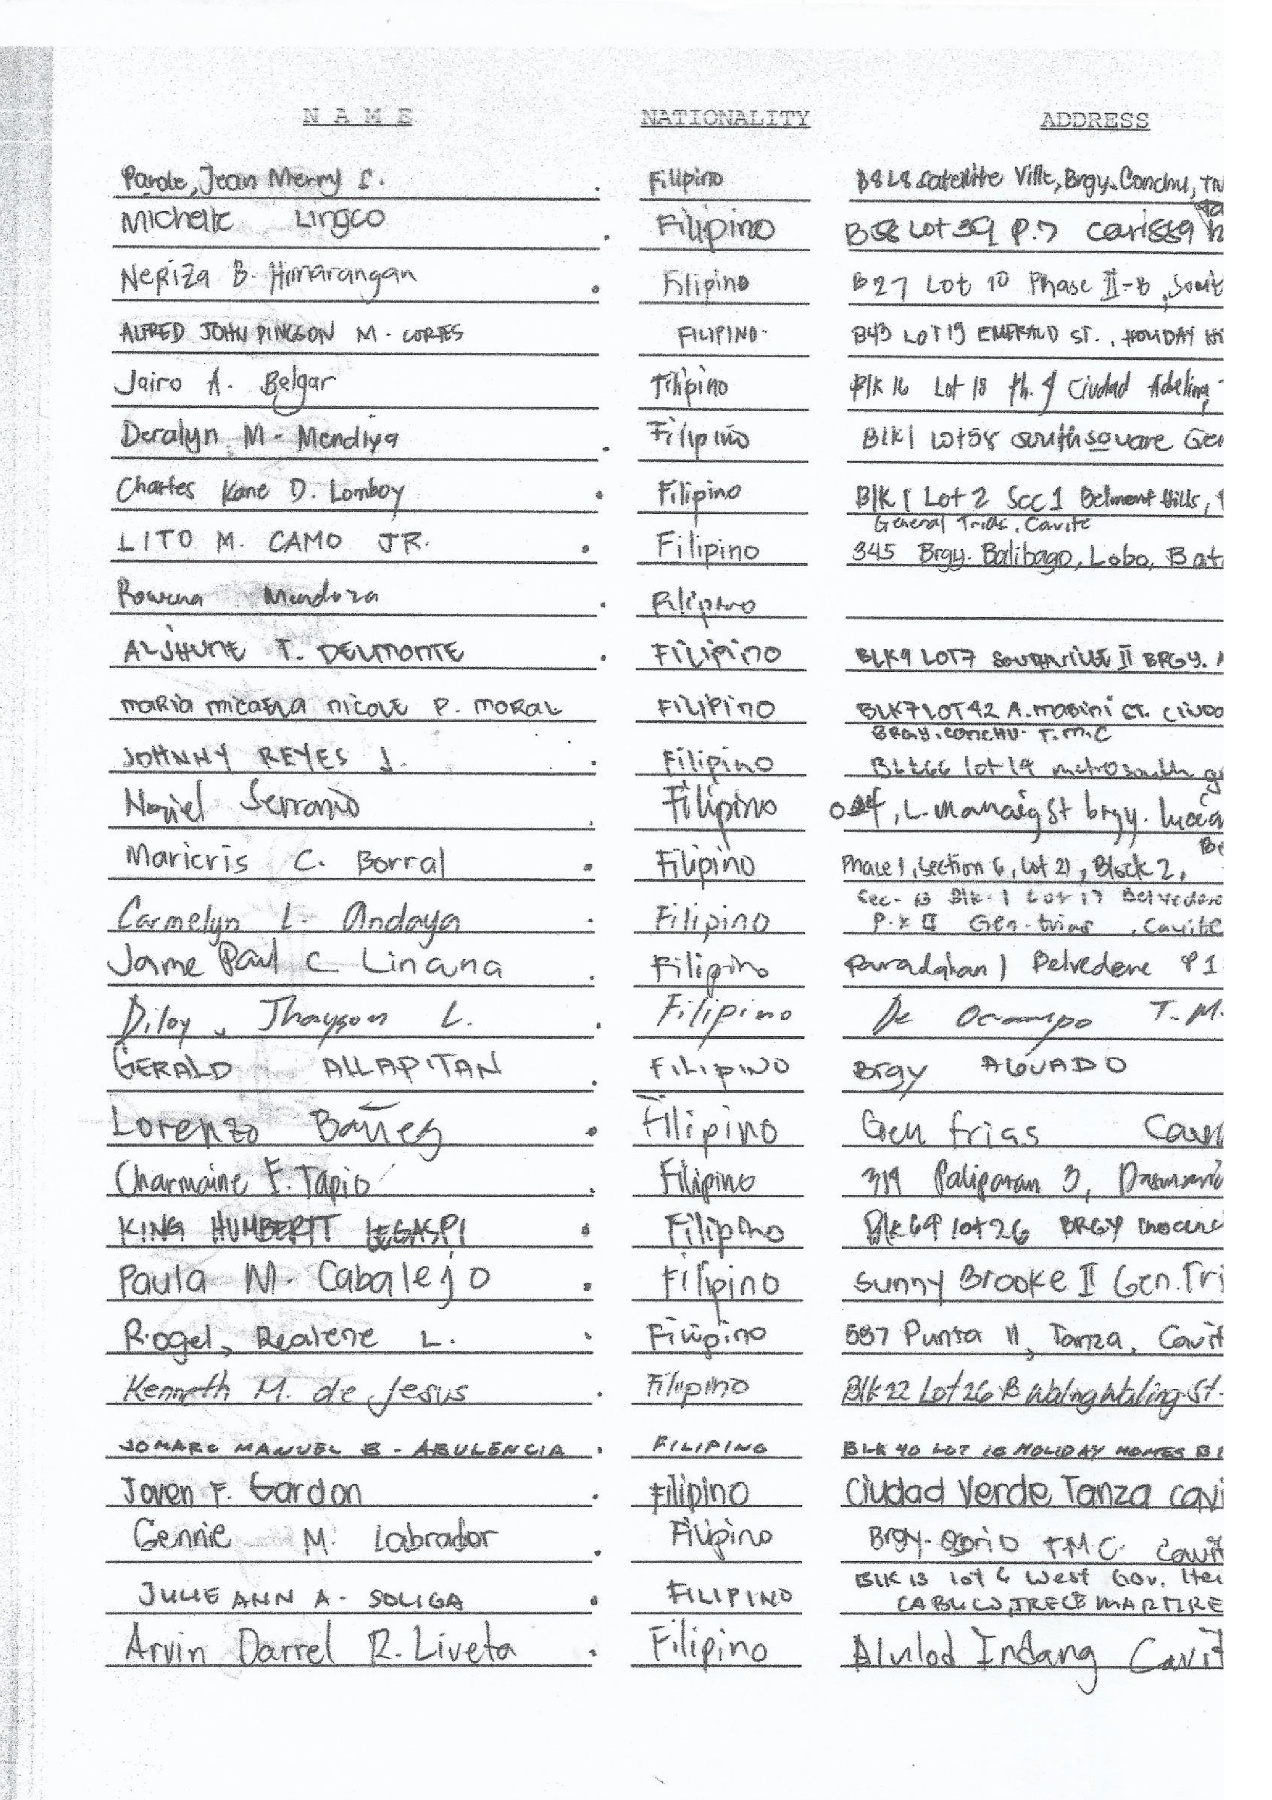 NAME NATIONALITY ADDRESS
Parole, Jean Merry S. Filipino B8 L8 Satellite Ville, Brgy. Conchu,
Michelle Lingco Filipino Lot 39 P.7 Carissa
Neriza B. Filipino B27 Lot 10 Phase II-B,
ALFRED JOHN PINGSON M. CORTES FILIPINO B43 LOT 19 EMERALD ST., HOLIDAY
Jairo A. Belgar Filipino Blk 16 Lot 18 Ph. Ciudad Adelina
Deralyn M. Mendiya Filipino Blk 1 Lot 58 southsquare Gen
Charles Kane D. Lomboy Filipino Blk 1 Lot 2 Scc 1 Belmont Hills,
General Trias, Cavite
LITO M. CAMO JR. Filipino 345 Brgy. Balibago, Lobo, Bat
Rowena Mendoza Filipino
ALJHUNE T. DELMONTE FILIPINO BLK9 LOT7 SOUTHVILLE II BRGY.
MARIA MICAELA NICOLE P. MORAL FILIPINO BLK 7 LOT 42 A. MABINI ST.
BRGY. CONCHU T.M.C
JOHNNY REYES J. Filipino lot 19 metrosouth
Noriel Serrano Filipino L. Manaig St brgy.
Maricris C. Borral Filipino Phase 1, Section 6, Lot 21, Block 2,
Sec- 13 Blk. 1 Lot 17 Belvedere
Carmelyn L. Andaya Filipino Gen. trias, Cavite
Jayme Paul C Linana Filipino Paradahan 1 Belvedere P1
Diloy, Thayson L. Filipino De Ocampo T.M.
GERALD ALLAPITAN FILIPINO Brgy AGUADO
Lorenzo Bañez Filipino Gen Trias
Charmaine F. Tapio Filipino 319 Paliparan 3,
KING HUMBERTT LEGASPI Filipino Blk 69 lot 26 BRGY
Paula M. Cabalejo Filipino Sunny Brooke II Gen. Tri
Rogel, Realene L. Filipino 557 Punta II, Tanza, Cavit
Kenneth M. de Jesus Filipino Blk 22 Lot 26 B Waling Waling St.
JOMARC MANUEL B. ABULENCIA FILIPINO BLK 40 LOT 18 HOLIDAY HOMES
Joven F. Gordon Filipino Ciudad Verde Tanza cavi
Gennie M. Labrador Filipino Brgy. Osorio T.M.C. Cavit
Blk 13 lot 6 West Gov.
JULIE ANN A. SOLIGA FILIPINO CABUCO, TRECE MARTIRE
Arvin Darrel R. Liveta Filipino Alulod Indang Cavit